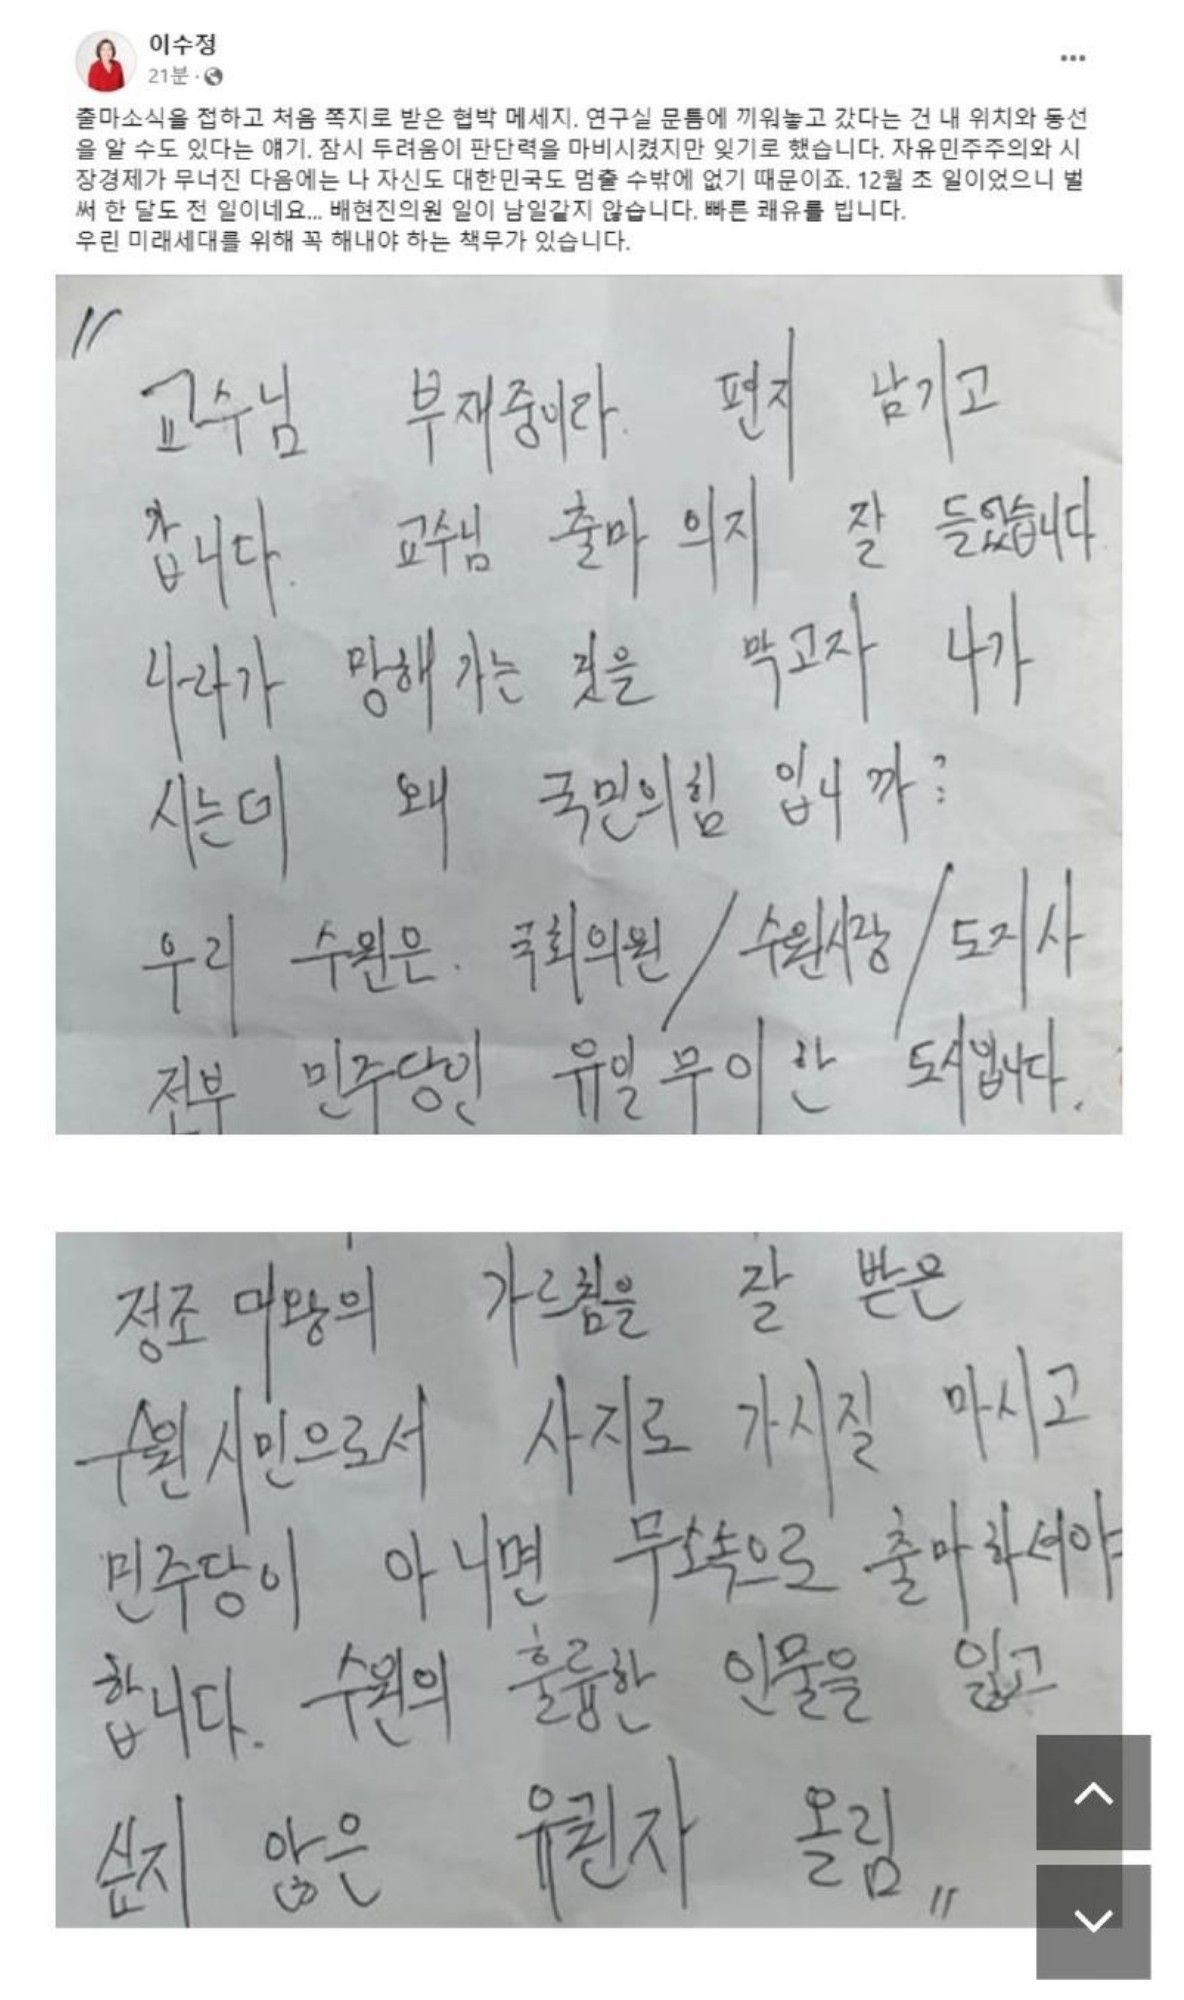 이수정
21분 ·
출마소식을 접하고 처음 쪽지로 받은 협박 메세지. 연구실 문틈에 끼워놓고 갔다는 건 내 위치와 동선
을 알 수도 있다는 얘기. 잠시 두려움이 판단력을 마비시켰지만 잊기로 했습니다. 자유민주주의와 시
장경제가 무너진 다음에는 나 자신도 대한민국도 멈출 수밖에 없기 때문이죠. 12월 초 일이었으니 벌
써 한 달도 전 일이네요... 배현진의원 일이 남일같지 않습니다. 빠른 쾌유를 빕니다.
우린 미래세대를 위해 꼭 해내야 하는 책무가 있습니다.
"
교수님 부재중이라. 편지 남기고
갑니다. 교수님 출마 의지 잘 들었습니다.
나라가 망해 가는 것을 막고자 나가
시는데 왜 국민의힘 입니까?
우리 수원은. 국회의원/수원시장/도지사
전부 민주당인 유일무이한 도시입니다.
정조 대왕의 가르침을 잘 받은
수원 시민으로서 사지로 가시질 마시고
민주당이 아니면 무소속으로 출마하셔야
합니다. 수원의 훌륭한 인물을 잃고
싶지 않은 유권자 올림 "